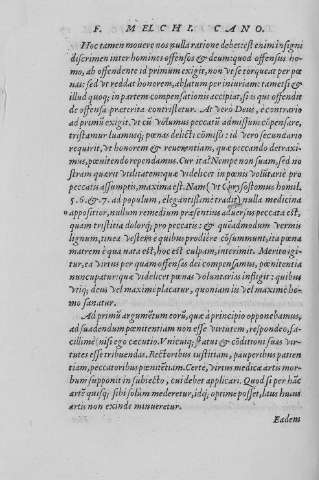 F. MELCHI. CANO.
Hoc tamen movere nos nulla ratione debet: est enim insigni
discrimen inter homines offensos & deum: quod offensus ho-
mo, ab offendente id primum exigit, non vt se torqueat per pœ-
nas: sed vt reddat honorem, ablatum per iniuriam: tametsi &
illud quoq; in partem compensationis accipiat, si is qui offendit
de offensa præterita contristetur. At verò Deus, è contrario
ad primũ exigit. vt cũ volumus peccatũ admissum cõpensare,
tristamur luamusq; pœnas delicti cõmisso: id vero secundario
requirit, vt honorem & reuerentiam, que peccando detraxi-
mus, pœnitendo rependamus. Cur ita? Nempe non suam, sed no
stram querit vtilitatem: quæ videlicet in pœnis volũtariè pro
peccatis assumptis, maxima est. Nam (vt Chrysostomus homil.
5.6.&.7. ad populum, elegantissimè tradit) nulla medicina
appositior, nullum remedium præsentius aduersus peccata est,
quam tristitia dolorq; pro peccatis: & quẽadmodum vermis
lignum, tinea vestem è quibus prodière cõsummunt, ita pœna
matrem è qua nata est, hoc est culpam, interimit. Meritò igi-
tur, ea virtus per quam offensa dei compensamus, pœnitentia
nuncupatur: quæ videlicet pœnas voluntarias infligit: quibus
vtiq; deus vel maxime placatur, quoniam iis vel maximè ho-
mo sanatur.
Ad primũ argumẽtum eorũ, quæ à principio opponebamus,
ad suadendum pœnitentiam non esse virtutem, respondeo, fa-
cillimè (nisi ego cæcutio.) Vnicuiq; statui & cõditioni suas vir-
tutes esse tribuendas. Rectoribus iustitiam, pauperibus patien
tiam, peccatoribus pœnitẽtiam. Certè, virtus medicæ artis mor-
bum supponit in subiecto, cui debet applicari. Quod si per hãc
artẽ quisq; sibi solùm mederetur, idq; optime posset, laus huius
artis non exinde minueretur.
Eadem